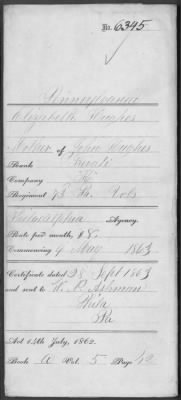 No. 6345
Pennsylvania
Elizabeth Hughes
Mother of John Hughes
Rank Private
Company
Regiment 73 Pa. Vols
Philadelphia Agency.
Rate per month, $8.
Commencing 9 May 1863
Certificate dated 28 Sept 1863
and sent to W. P. Ashman
Phila
Pa
Act 14th July, 1862.
Book A Vol. 5 Page 42